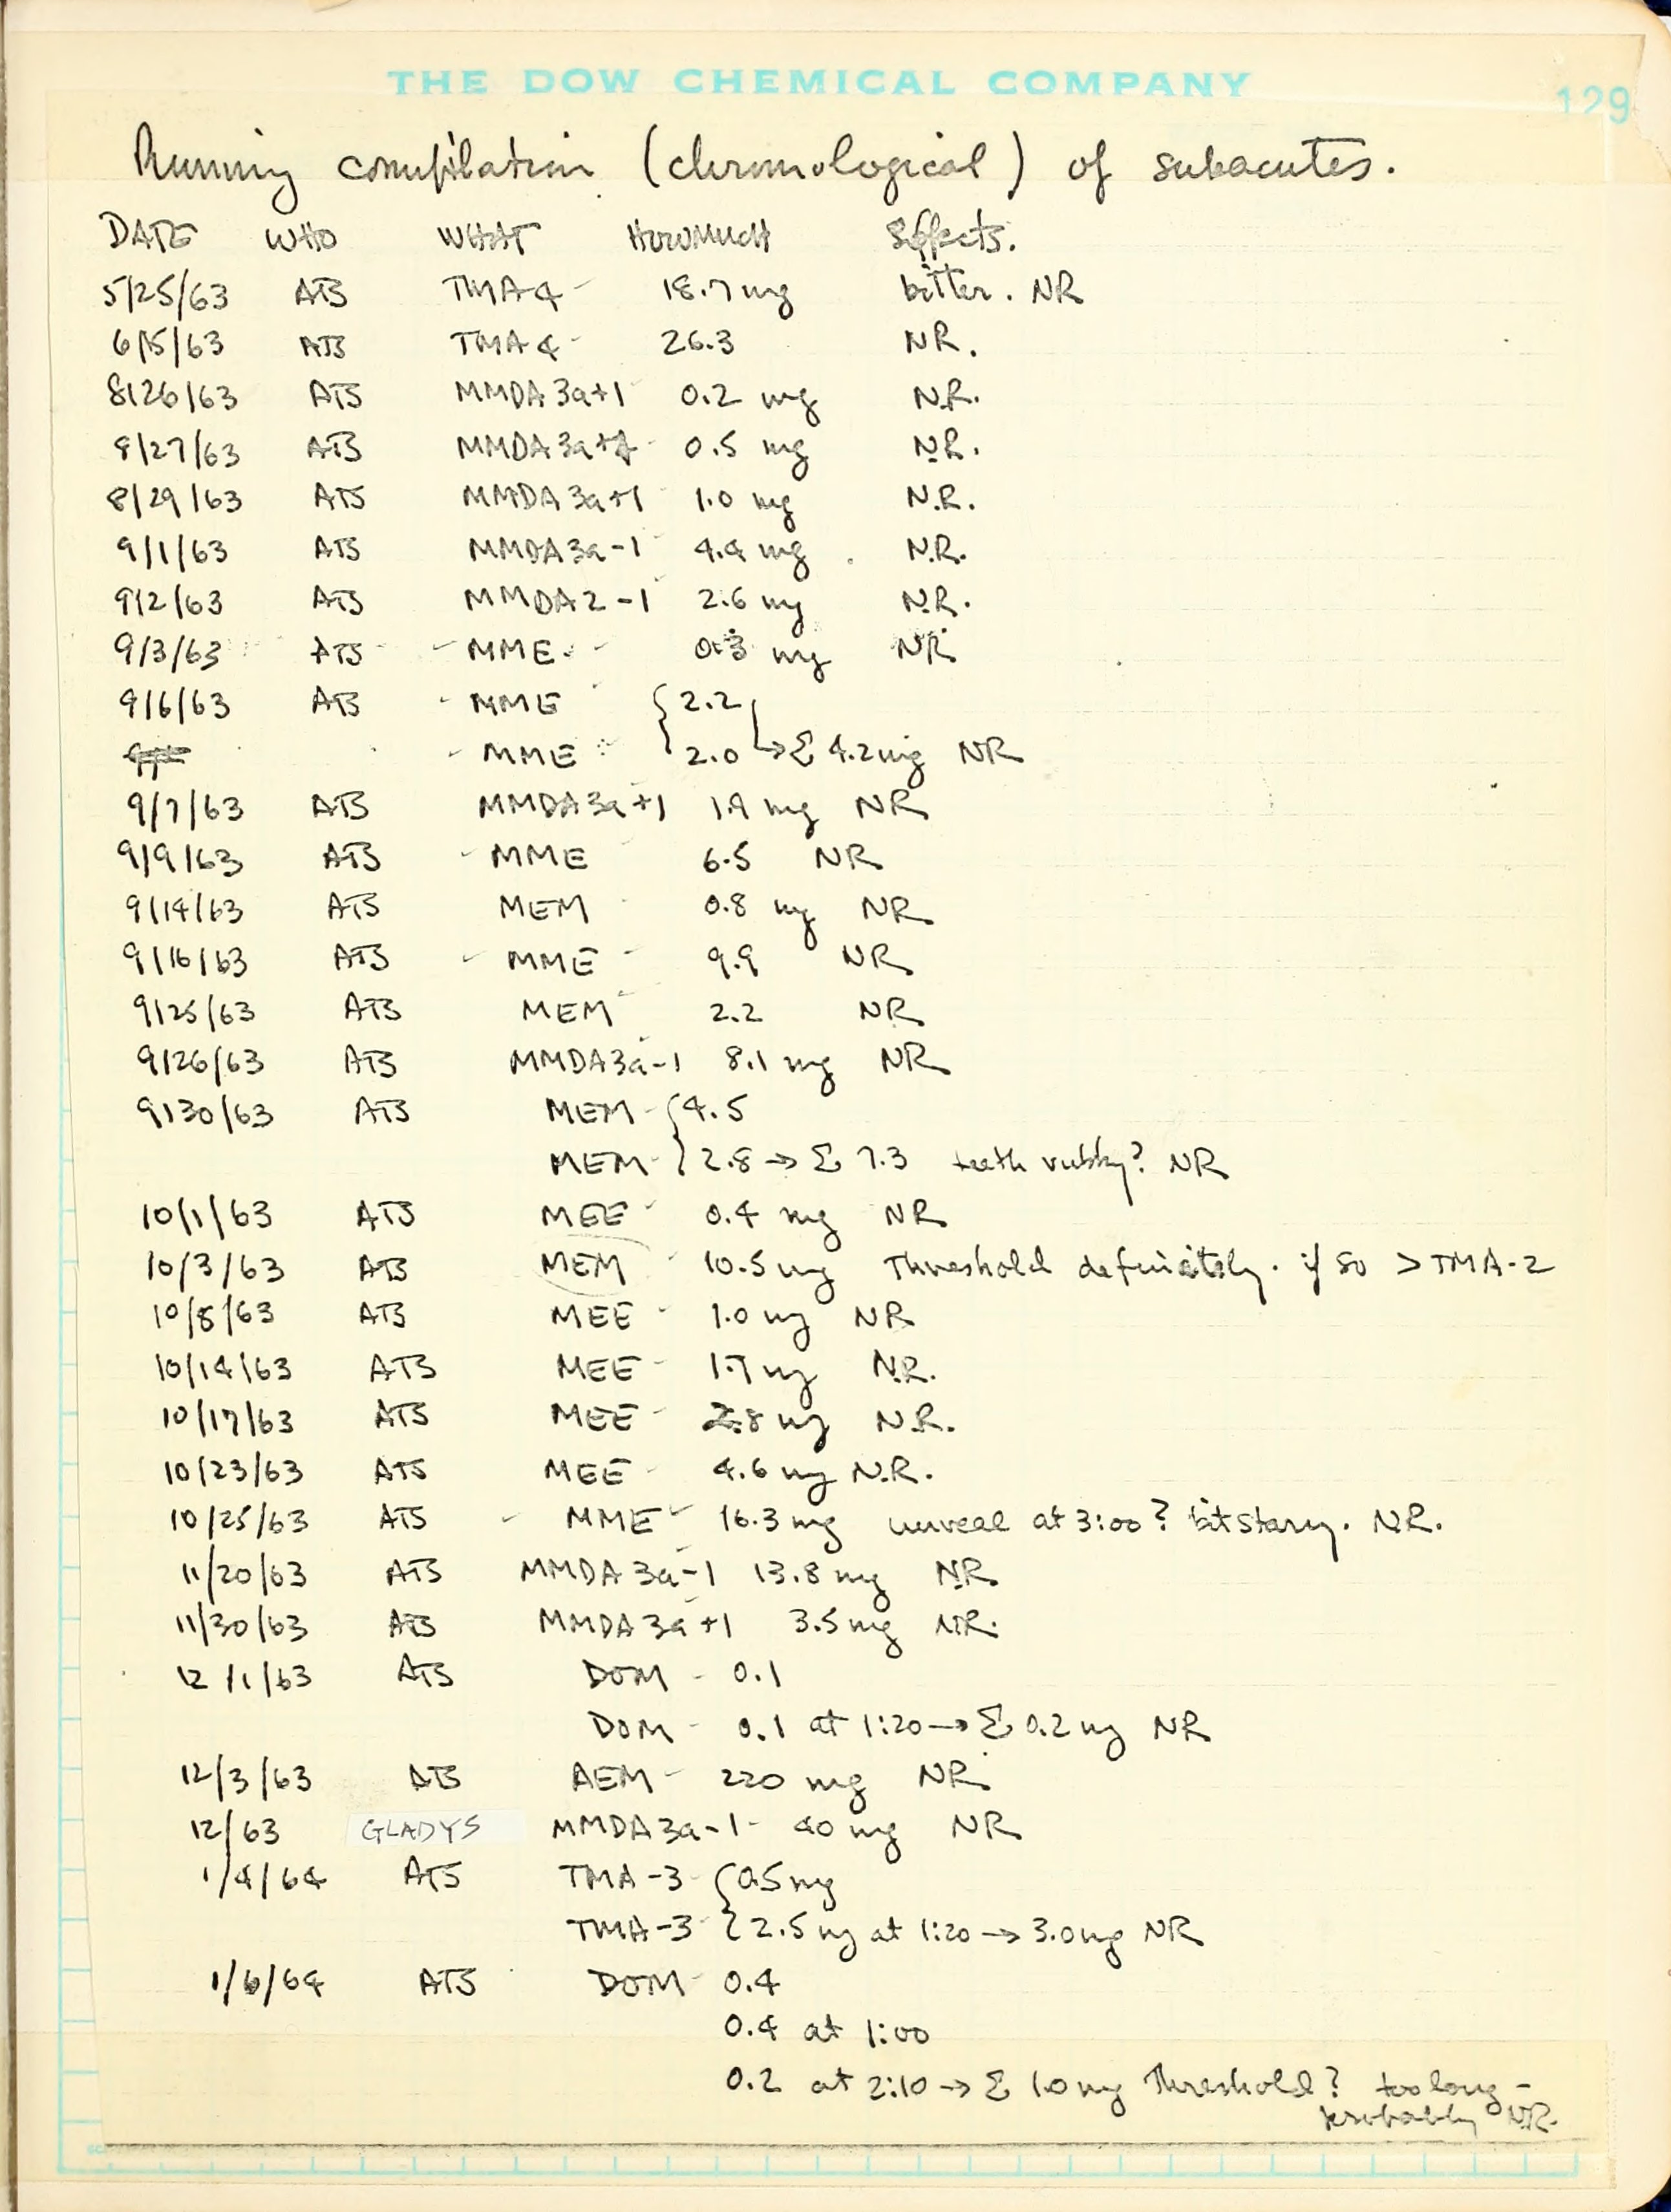 THE DOW CHEMICAL COMPANY
129
Running compilation (chronological) of subacutes.
DATE WHO WHAT HOWMUCH Effects.
5/25/63 ATS TMA4 - 18.7 mg bitter. NR
6/15/63 ATS TMA4 - 26.3 NR.
8/26/63 ATS MMDA3a+1 0.2 mg N.R.
8/27/63 ATS MMDA3a+1 0.5 mg N.R.
8/29/63 ATS MMDA3a+1 1.0 mg N.R.
9/1/63 ATS MMDA3a-1 4.4 mg N.R.
9/2/63 ATS MMDA2-1 2.6 mg N.R.
9/3/63 ATS - MME - 0.3 mg NR
9/6/63 ATS - MME { 2.2
- MME 2.0 → Σ 4.2 mg NR
9/7/63 ATS MMDA3a+1 1.9 mg NR
9/9/63 ATS - MME 6.5 NR
9/14/63 ATS MEM 0.8 mg NR
9/16/63 ATS - MME - 9.9 NR
9/25/63 ATS MEM - 2.2 NR
9/26/63 ATS MMDA3a-1 8.1 mg NR
9/30/63 ATS MEM - { 4.5
MEM - 2.8 → Σ 7.3 teeth rubby? NR
10/1/63 ATS MEE - 0.4 mg NR
10/3/63 ATS MEM - 10.5 mg Threshold definitely. if so > TMA-2
10/8/63 ATS MEE - 1.0 mg NR
10/14/63 ATS MEE - 1.7 mg N.R.
10/17/63 ATS MEE - 2.8 mg N.R.
10/23/63 ATS MEE - 4.6 mg N.R.
10/25/63 ATS - MME - 16.3 mg unreal at 3:00? bit stary. N.R.
11/20/63 ATS MMDA3a-1 13.8 mg NR
11/30/63 ATS MMDA3a+1 3.5 mg NR.
12/1/63 ATS DOM - 0.1
DOM - 0.1 at 1:20 → Σ 0.2 mg NR
12/3/63 ATS AEM - 220 mg NR
12/63 GLADYS MMDA3a-1 - 40 mg NR
1/4/64 ATS TMA-3 { 0.5 mg
TMA-3 2.5 mg at 1:20 → 3.0 mg NR
1/6/64 ATS DOM - 0.4
0.4 at 1:00
0.2 at 2:10 → Σ 1.0 mg Threshold? too long -
probably NR.